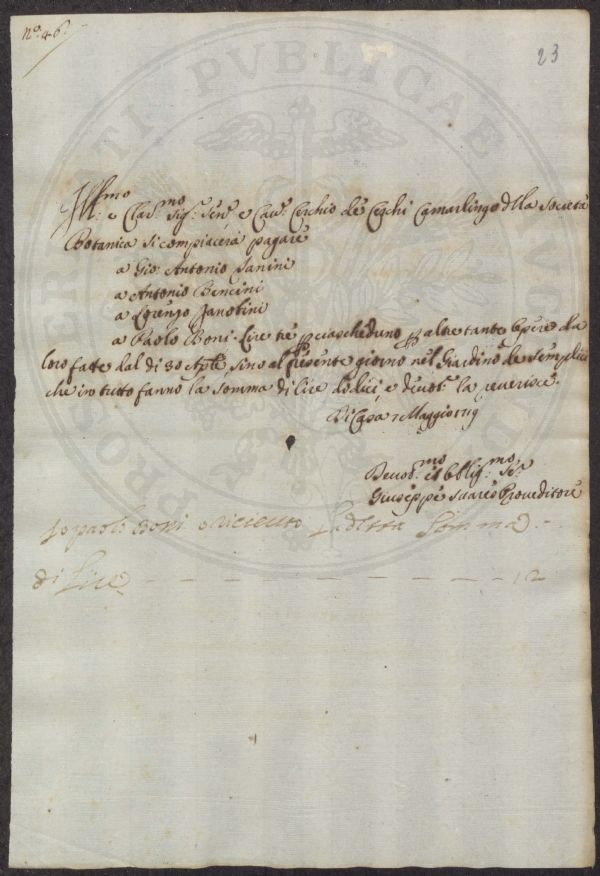 N.º 46.
23
Ill:mo e Clar:mo Sig:r Sen:re e Cav:re Cerchio de Cerchi Camarlingo della Società
Botanica si compiacerà pagare
a Gio: Antonio Sanini
a Antonio Bencini
a Lorenzo Zanobini
a Paolo Boni Lire tre p ciascheduno p altre tante Opere da
loro fatte dal di 30 Aple sino al presente giorno nel Giardino de semplici
che in tutto fanno la somma di lire dodici, e devot: la reverisce.
Di Casa Maggio
Devot:mo et Obblig:mo Se:re
Giuseppe Suares Proveditore
Io paolo Boni o riceuto la detta Somma
di Lire 12
PUBLICAE